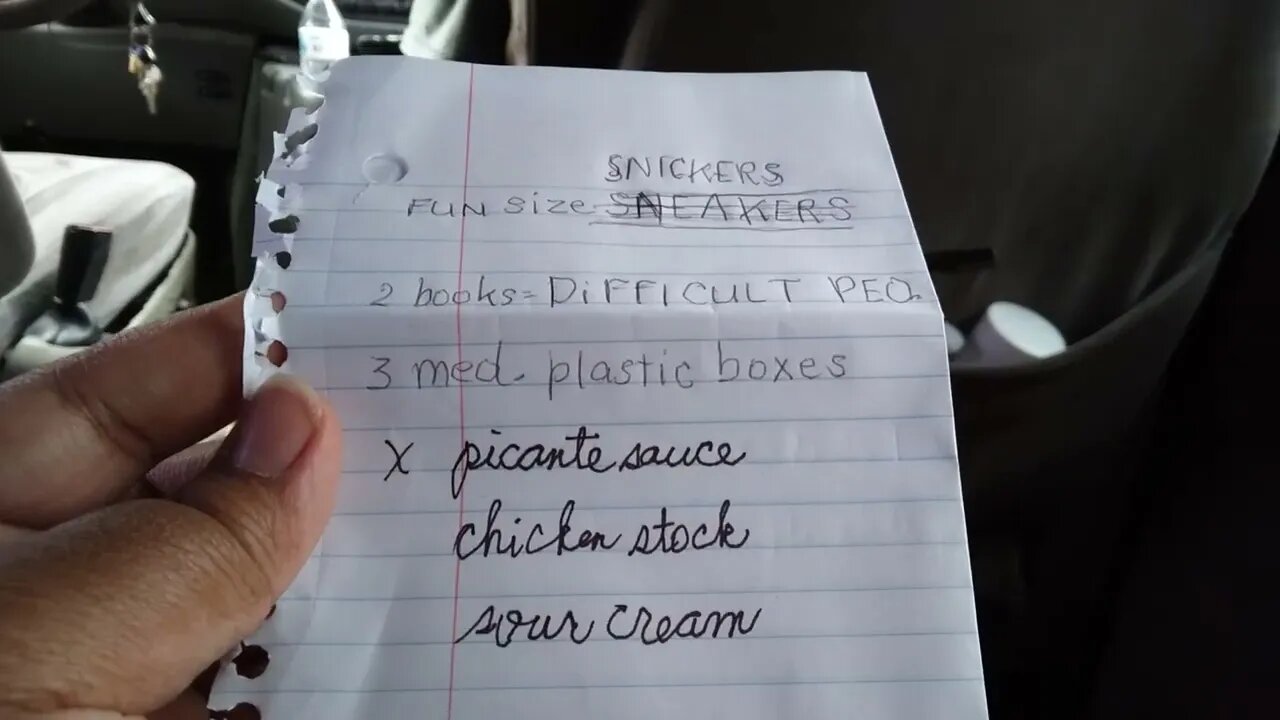 SNICKERS
FUN SIZE SNEAKERS
2 books = DiFFICULT PEO.
3 med. plastic boxes
X picante sauce
chicken stock
sour cream